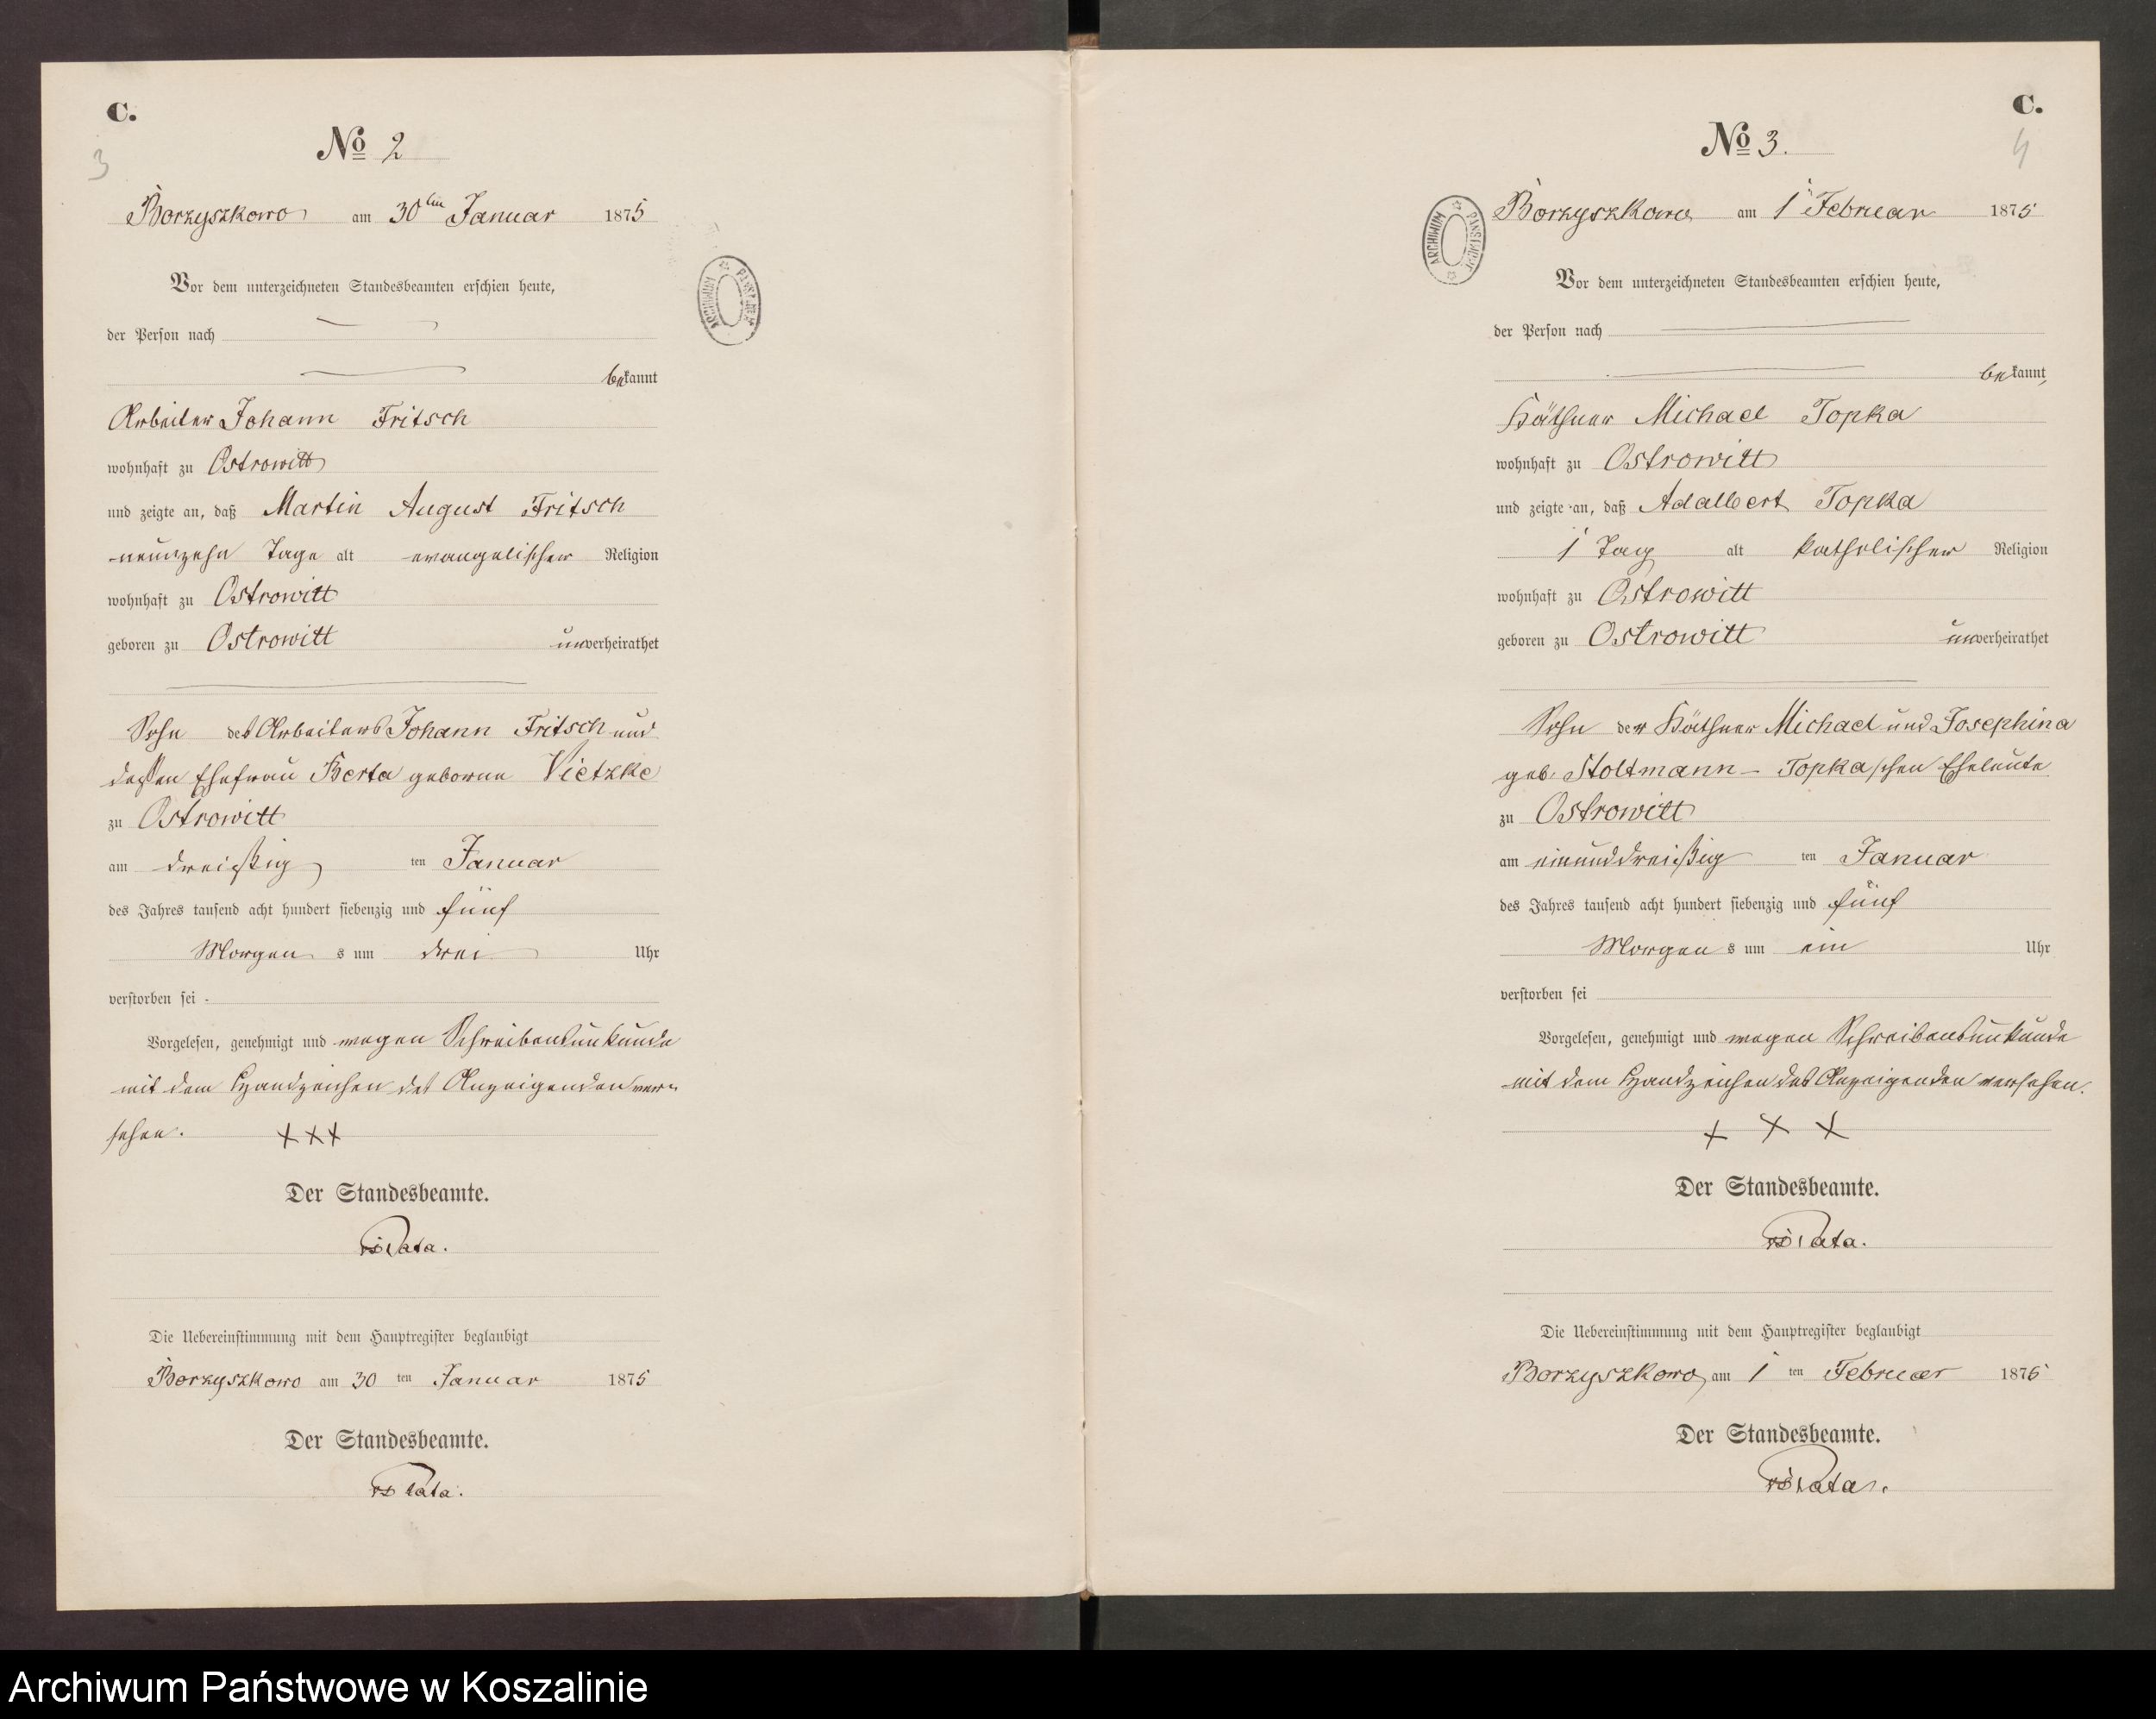 C.
3
No 2
Borzyszkowo am 30ten Januar 1875
Vor dem unterzeichneten Standesbeamten erschien heute,
der Person nach
bekannt
Arbeiter Johann Fritsch
wohnhaft zu Ostrowitt
und zeigte an, daß Martin August Fritsch
neunzehn Tage alt evangelischer Religion
wohnhaft zu Ostrowitt
geboren zu Ostrowitt unverheirathet
Sohn des Arbeiters Johann Fritsch und
dessen Ehefrau Berta geborne Vietzke
zu Ostrowitt
am dreißig ten Januar
des Jahres tausend acht hundert siebenzig und fünf
Morgen s um drei Uhr
verstorben sei
Vorgelesen, genehmigt und wegen Schreibensunkunde
mit dem Handzeichen des Anzeigenden ver-
sehen. +++
Der Standesbeamte.
Die Uebereinstimmung mit dem Hauptregister beglaubigt
Borzyszkowo am 30 ten Januar 1875
Der Standesbeamte.
ARCHIWUM PAŃSTWOWE
C.
4
No 3.
Borzyszkowo am 1 Februar 1875
Vor dem unterzeichneten Standesbeamten erschien heute,
der Person nach
bekannt,
Käthner Michael Topka
wohnhaft zu Ostrowitt
und zeigte an, daß Adalbert Topka
1 Tag alt katholischer Religion
wohnhaft zu Ostrowitt
geboren zu Ostrowitt unverheirathet
Sohn der Käthner Michael und Josephina
geb. Stoltmann - Topkaschen Eheleute
zu Ostrowitt
am einunddreißig ten Januar
des Jahres tausend acht hundert siebenzig und fünf
Morgen s um ein Uhr
verstorben sei
Vorgelesen, genehmigt und wegen Schreibensunkunde
mit dem Handzeichen des Anzeigenden versehen.
+ + +
Der Standesbeamte.
Die Uebereinstimmung mit dem Hauptregister beglaubigt
Borzyszkowo am 1 ten Februar 1875
Der Standesbeamte.
ARCHIWUM PAŃSTWOWE
Archiwum Państwowe w Koszalinie